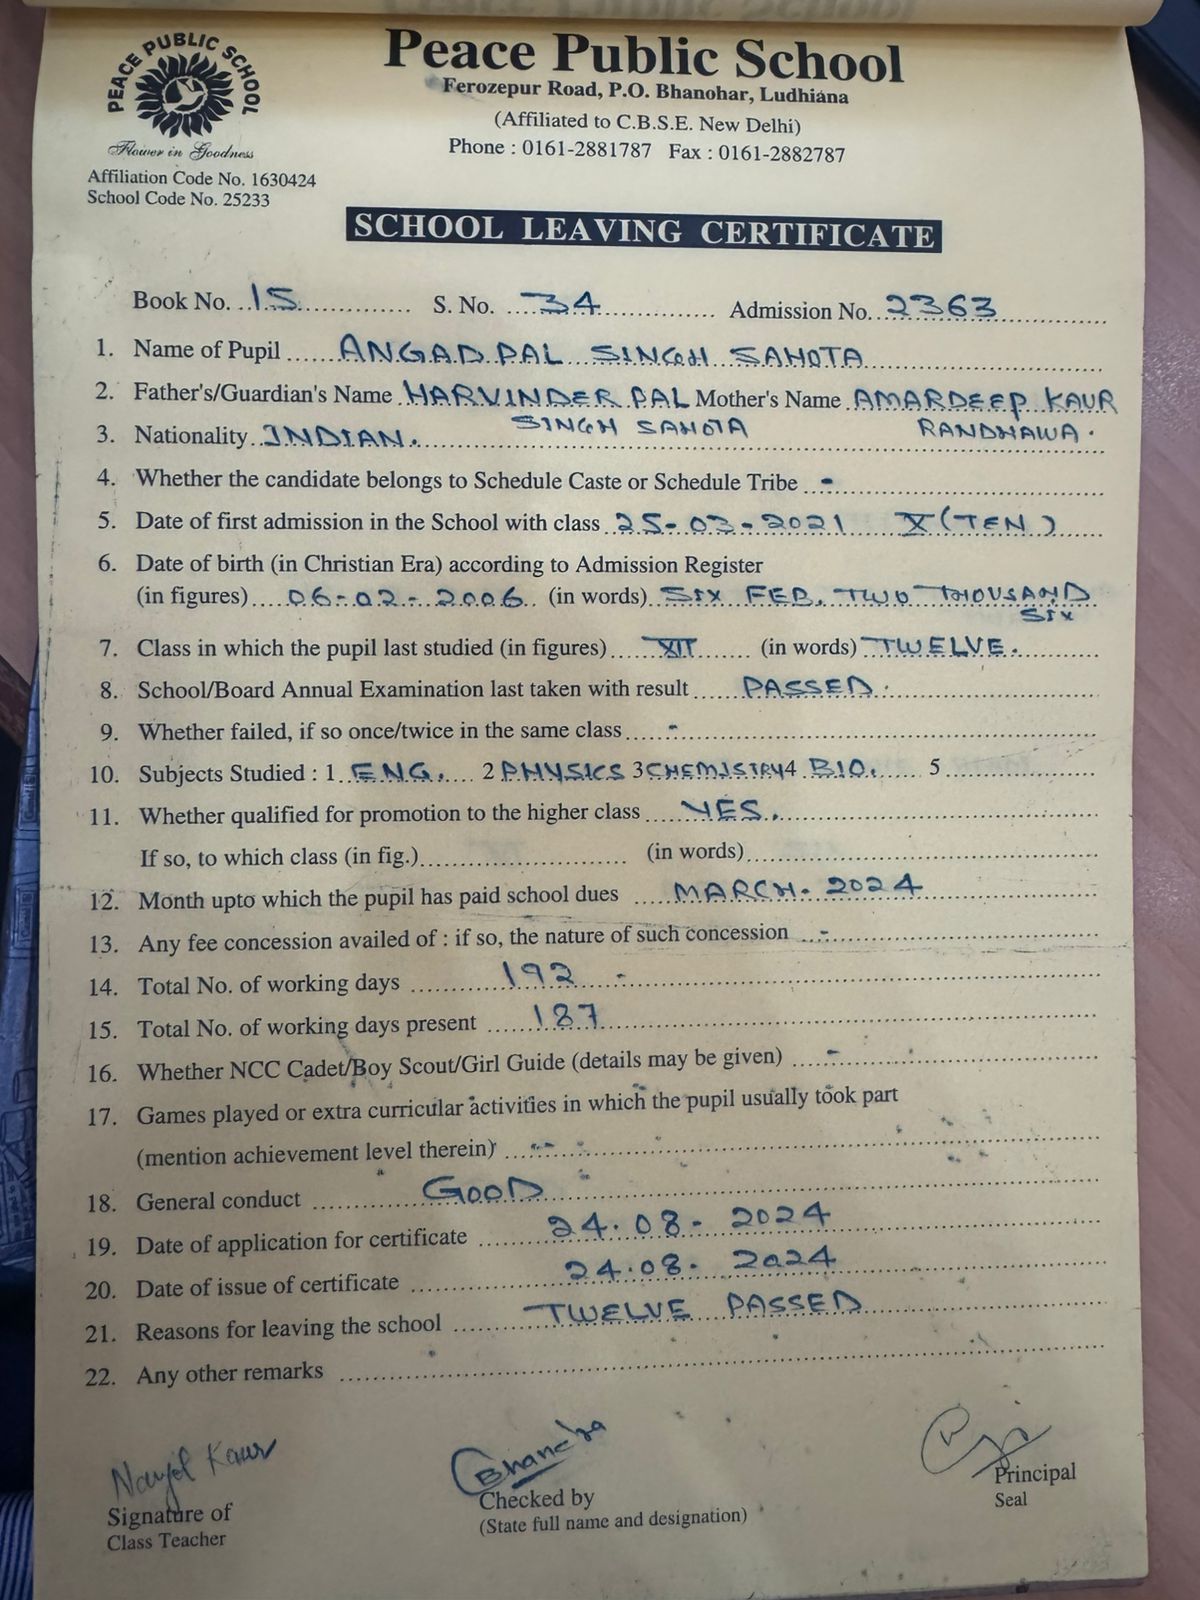 PEACE PUBLIC SCHOOL
Flower in Goodness
Affiliation Code No. 1630424
School Code No. 25233
Peace Public School
Ferozepur Road, P.O. Bhanohar, Ludhiana
(Affiliated to C.B.S.E. New Delhi)
Phone : 0161-2881787 Fax : 0161-2882787
SCHOOL LEAVING CERTIFICATE
Book No. 15 S. No. 34 Admission No. 2363
1. Name of Pupil ANGAD PAL SINGH SAHOTA
2. Father's/Guardian's Name HARVINDER PAL Mother's Name AMARDEEP KAUR
SINGH SAHOTA RANDHAWA.
3. Nationality INDIAN.
4. Whether the candidate belongs to Schedule Caste or Schedule Tribe -
5. Date of first admission in the School with class 25-03-2021 X (TEN)
6. Date of birth (in Christian Era) according to Admission Register
(in figures) 06-02-2006 (in words) SIX FEB. TWO THOUSAND
SIX
7. Class in which the pupil last studied (in figures) XII (in words) TWELVE.
8. School/Board Annual Examination last taken with result PASSED.
9. Whether failed, if so once/twice in the same class -
10. Subjects Studied : 1 ENG. 2 PHYSICS 3 CHEMISTRY 4 BIO. 5
11. Whether qualified for promotion to the higher class YES.
If so, to which class (in fig.) (in words)
12. Month upto which the pupil has paid school dues MARCH. 2024
13. Any fee concession availed of : if so, the nature of such concession -
14. Total No. of working days 192 -
15. Total No. of working days present 187
16. Whether NCC Cadet/Boy Scout/Girl Guide (details may be given) -
17. Games played or extra curricular activities in which the pupil usually took part
(mention achievement level therein) --
18. General conduct GOOD
19. Date of application for certificate 24.08-2024
20. Date of issue of certificate 24.08-2024
21. Reasons for leaving the school TWELVE PASSED
22. Any other remarks
Kaur
Signature of
Class Teacher
Checked by
(State full name and designation)
Principal
Seal